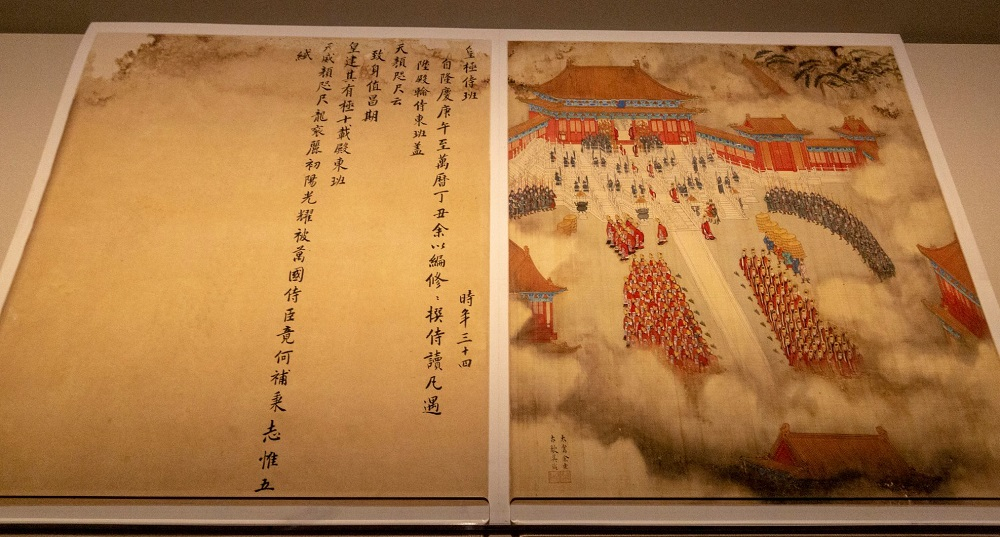 皇極侍班 時年三十四
自隆慶庚午至萬曆丁丑余以編修〻撰侍讀凡遇
陞殿輪侍東班蓋
天顏咫尺云
致身值昌期
皇建其有極十載殿東班
天威顏咫尺龍袞麗初陽光耀被萬國侍臣竟何補秉志惟五
緎